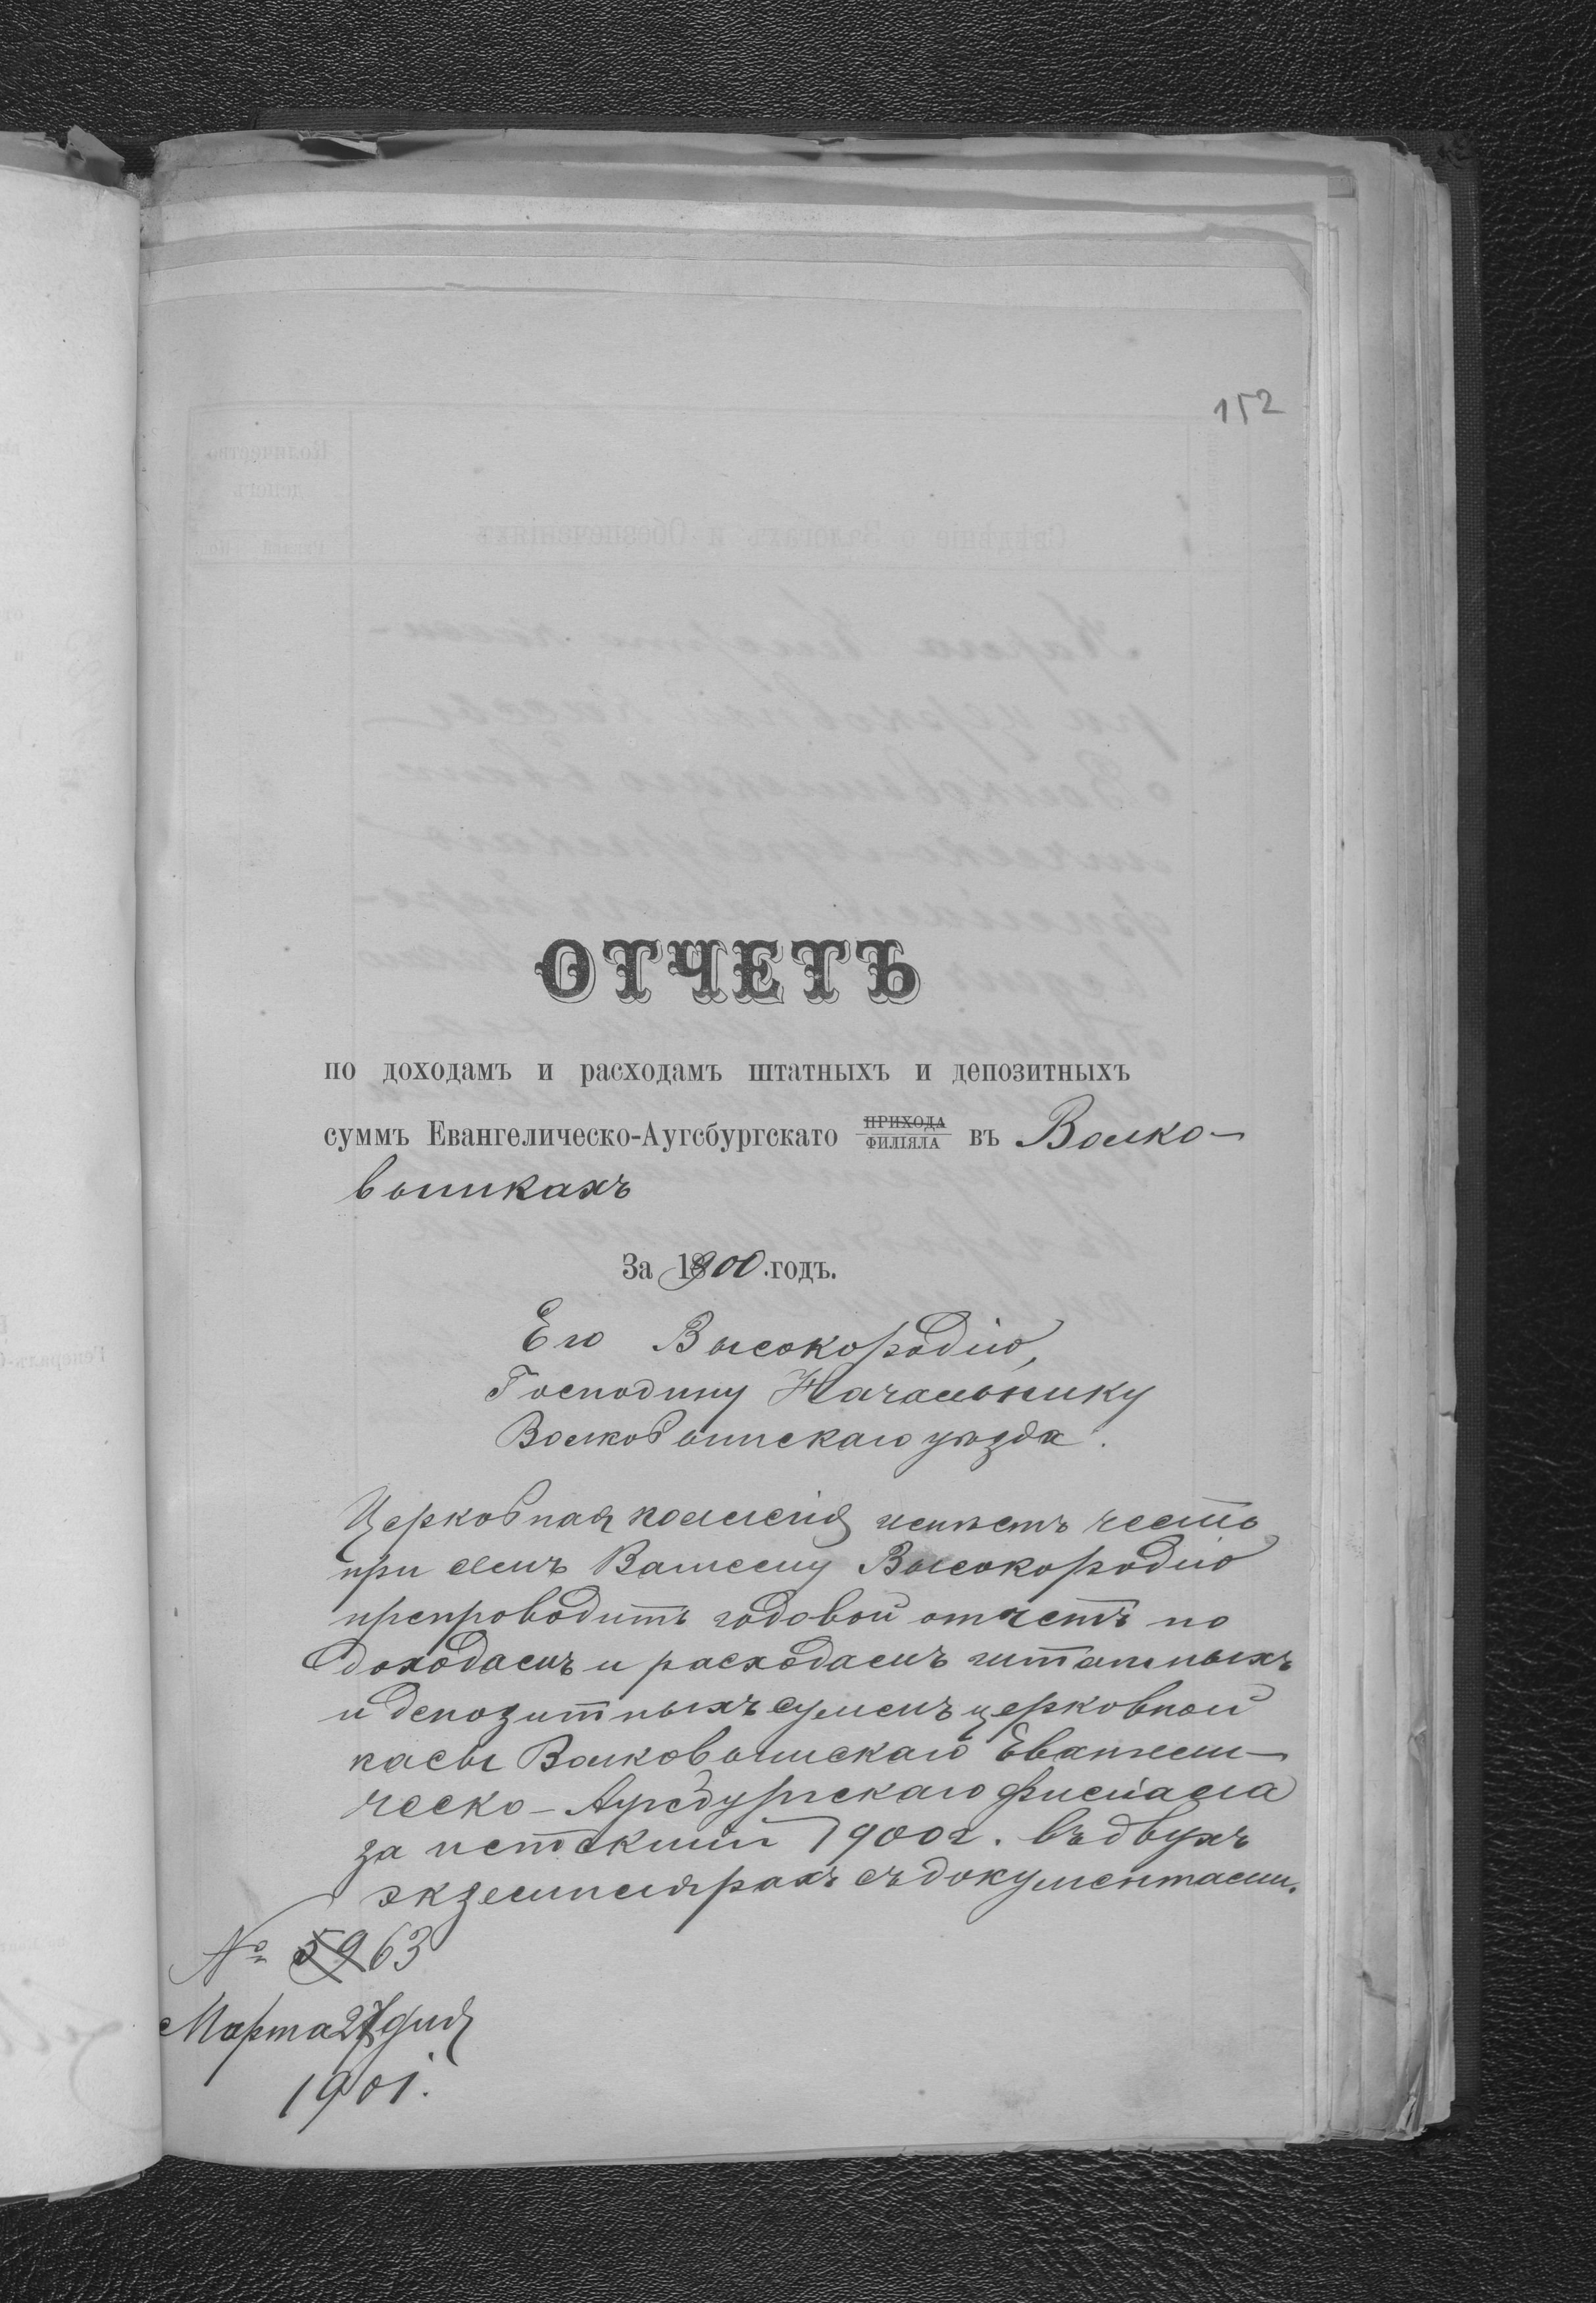 152
ОТЧЕТЪ
по доходамъ и расходамъ штатныхъ и депозитныхъ
суммъ Евангелическо-Аугсбургскато ПРИХОДА ФИЛІЯЛА въ Волко-
вышкахъ
За 1900 годъ.
Его Высокородію,
Господину Начальнику
Волковышскаго уѣзда.
Церковная коллегія имѣетъ честь
при семъ Вашему Высокородію
препроводить годовой отчетъ по
доходамъ и расходамъ штатныхъ
и депозитныхъ суммъ церковной
касы Волковышскаго Евангели-
ческо-Аугсбургскаго филіала
за истекшій 1900 г. въ двухъ
экземплярахъ съ документами.
№ 59 63
Марта 27 дня
1901.